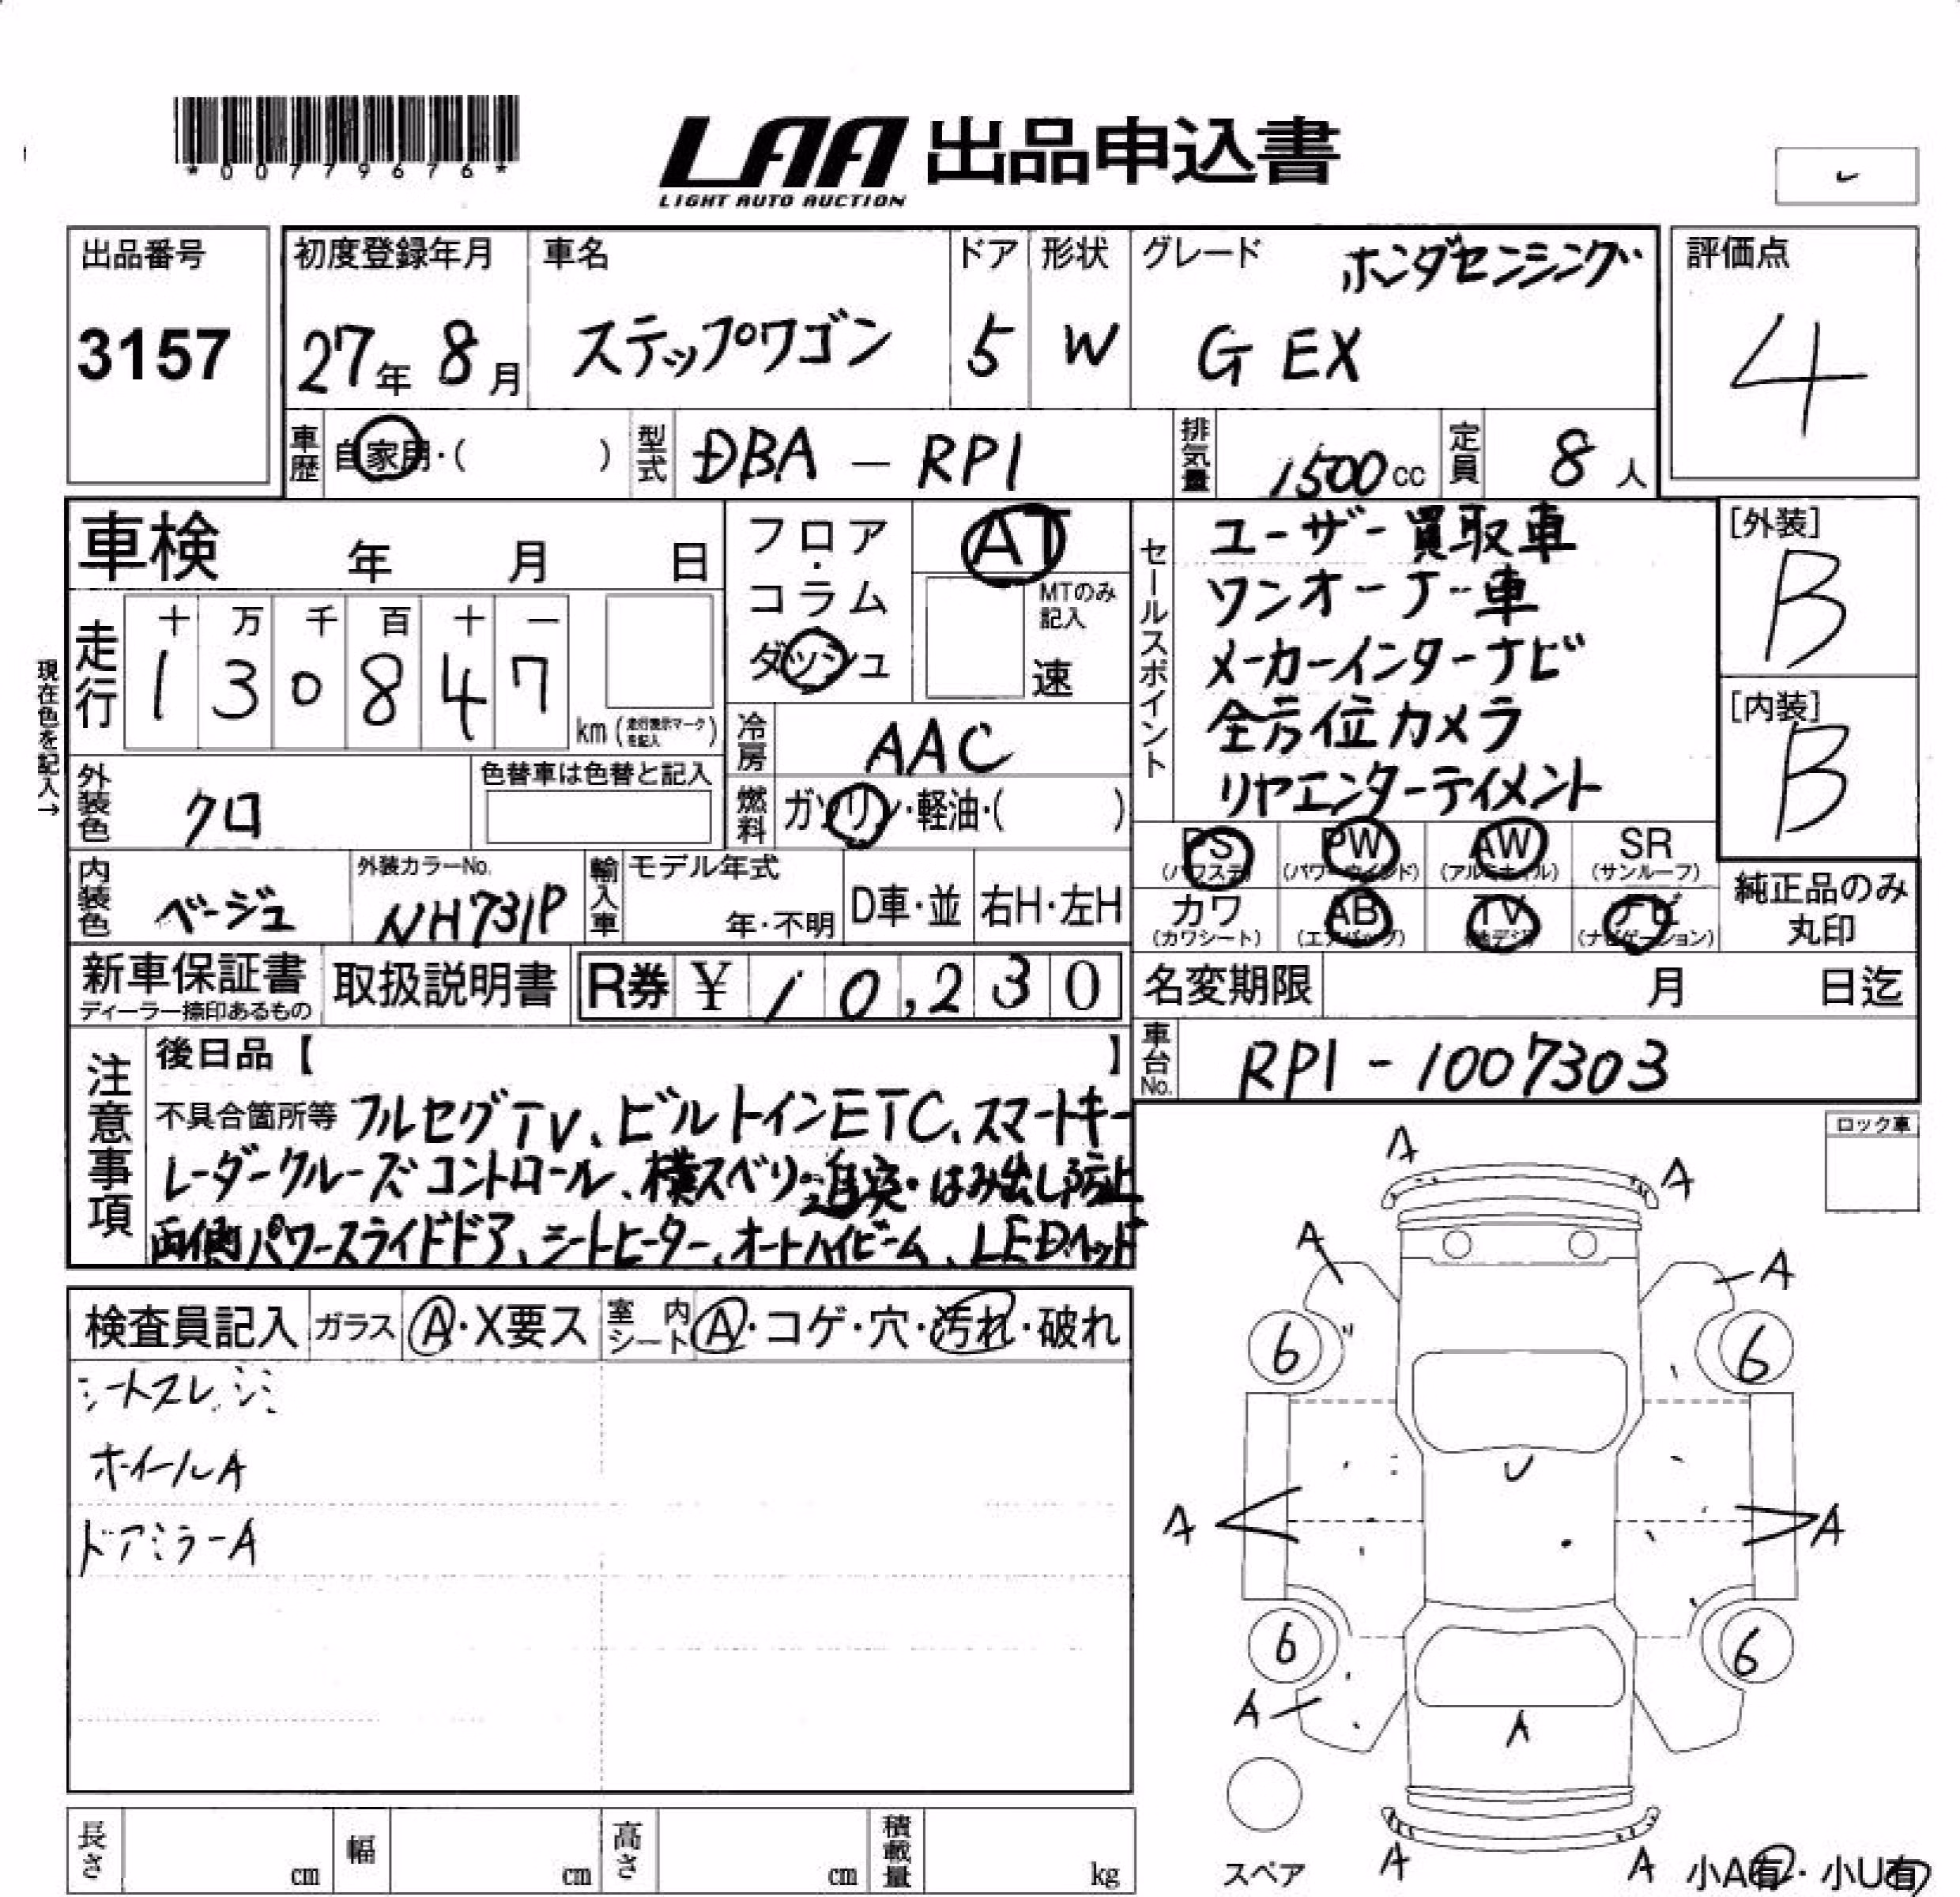 *00779676*
LAA 出品申込書
LIGHT AUTO AUCTION
出品番号
3157
初度登録年月
27年 8月
車名
ステップワゴン
ドア
5
形状
W
グレード
ホンダセンシング
G EX
評価点
4
車歴 自家用・( )
型式 DBA - RP1
排気量 1500cc
定員 8人
車検 年 月 日
現在色を記入→
走行
十 万 千 百 十 一
1 3 0 8 4 7
km (走行表示マークを記入)
フロア・コラム
ダッシュ
AT
MTのみ記入
速
冷房 AAC
燃料 ガソリン・軽油・( )
外装色 クロ
色替車は色替と記入
内装色 ベージュ
外装カラーNo.
NH731P
輸入車
モデル年式
年・不明
D車・並
右H・左H
セールスポイント
ユーザー買取車
ワンオーナー車
メーカーインターナビ
全方位カメラ
リヤエンターテイメント
[外装]
B
[内装]
B
PS (パワステ)
PW (パワーウインド)
AW (アルミホイル)
SR (サンルーフ)
カワ (カワシート)
AB (エアバッグ)
TV (地デジ)
ナビ (ナビゲーション)
純正品のみ
丸印
新車保証書
ディーラー捺印あるもの
取扱説明書
R券 ¥10,230
名変期限 月 日迄
車台No. RP1-1007303
注意事項
後日品【 】
不具合箇所等 フルセグTV、ビルトインETC、スマートキー
レーダークルーズコントロール、横スベリ・追突・はみ出し防止
両側パワースライドドア、シートヒーター、オートハイビーム、LEDヘッド
検査員記入
ガラス A・X要ス
室内シート A・コゲ・穴・汚れ・破れ
シートスレ、シミ
ホイールA
ドアミラーA
ロック車
A
A
A
A
6
6
U
A
A
6
6
A
A
スペア
A
A
小A有・小U有
長さ cm
幅 cm
高さ cm
積載量 kg